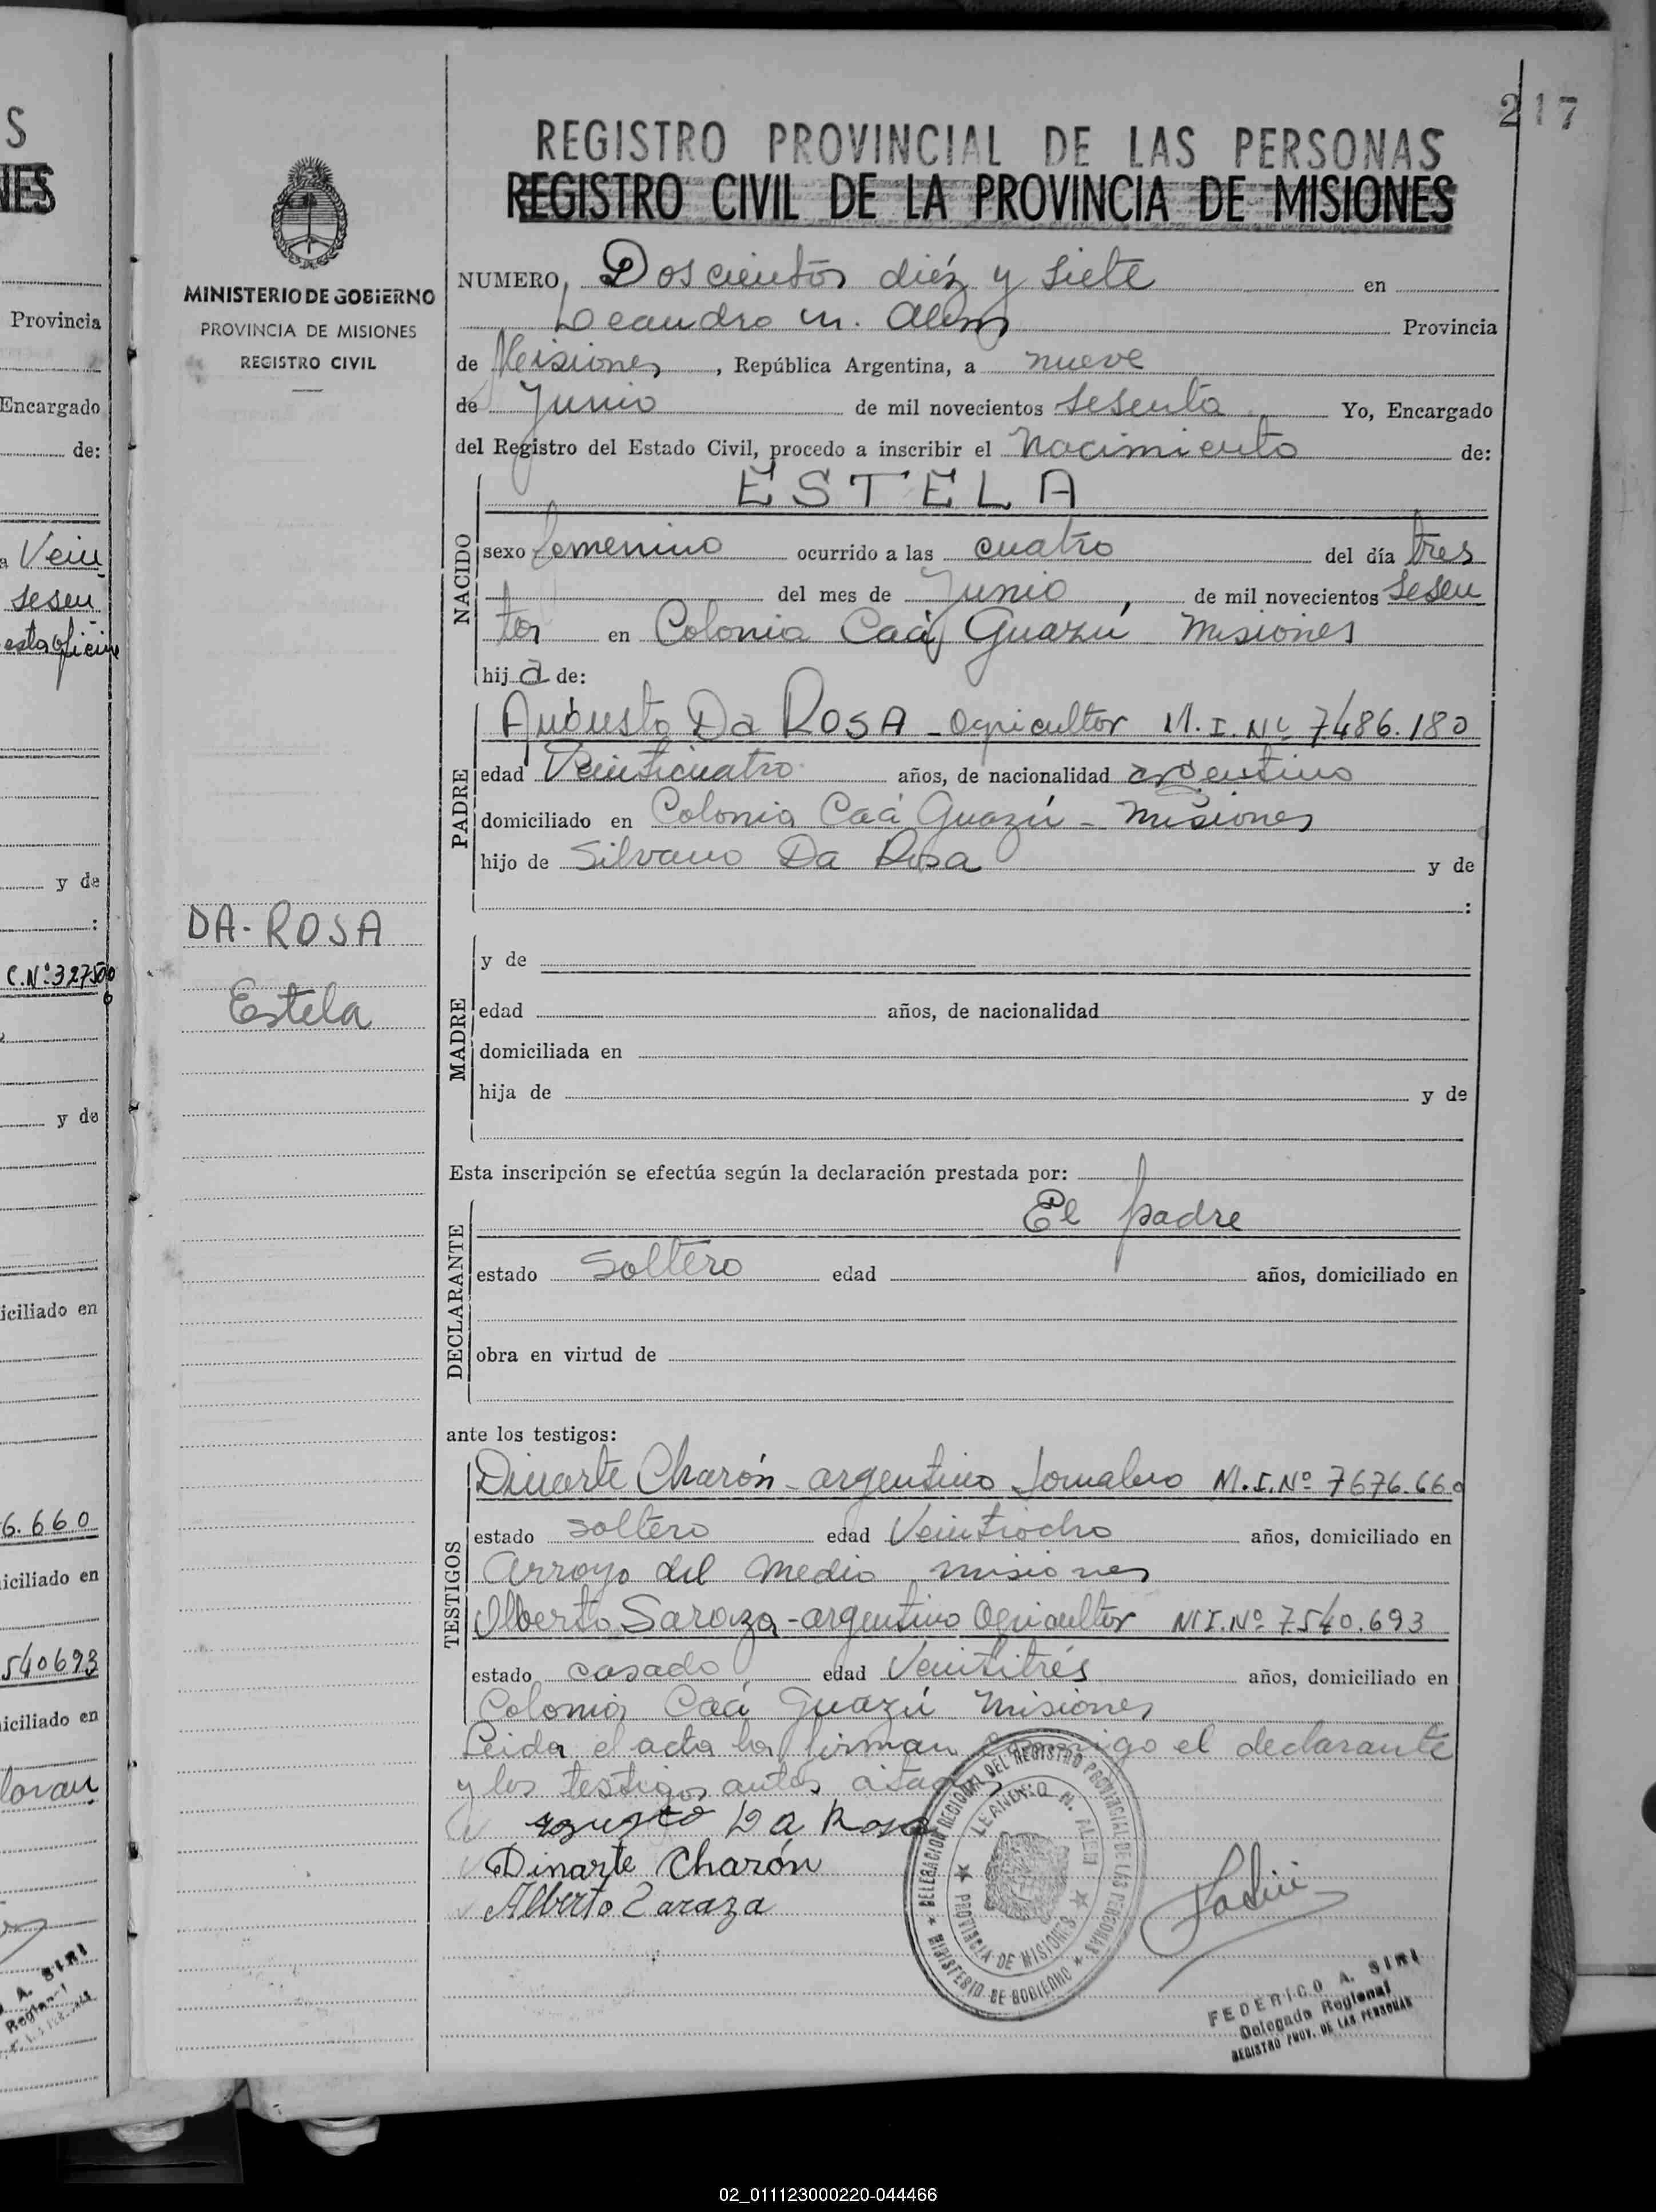 217
REGISTRO PROVINCIAL DE LAS PERSONAS
REGISTRO CIVIL DE LA PROVINCIA DE MISIONES
MINISTERIO DE GOBIERNO
PROVINCIA DE MISIONES
REGISTRO CIVIL
NUMERO, Doscientos diéz y siete en
Leandro N. Alem Provincia
de Misiones, República Argentina, a nueve
de Junio de mil novecientos sesenta Yo, Encargado
del Registro del Estado Civil, procedo a inscribir el Nacimiento de:
NACIDO
ESTELA
sexo femenino ocurrido a las cuatro del día tres
del mes de Junio, de mil novecientos sesen
ta en Colonia Caá Guazú Misiones
hija de:
PADRE
Augusto Da ROSA - agricultor M.I. Nº 7486.180
edad Veinticuatro años, de nacionalidad argentino
domiciliado en Colonia Caá Guazú - Misiones
hijo de Silvano Da Rosa y de
:
DA-ROSA
Estela
MADRE
y de
edad años, de nacionalidad
domiciliada en
hija de y de
Esta inscripción se efectúa según la declaración prestada por:
DECLARANTE
El padre
estado Soltero edad años, domiciliado en
obra en virtud de
ante los testigos:
TESTIGOS
Dinarte Charón - argentino Jornalero M.I.Nº 7676.660
estado soltero edad Veintiocho años, domiciliado en
Arroyo del Medio Misiones
Alberto Saraza - argentino Agricultor M.I.Nº 7540.693
estado casado edad Veintitrés años, domiciliado en
Colonia Caá Guazú Misiones
Leida el acta la firman conmigo el declarante
y los testigos antes citados
Augusto Da Rosa
Dinarte Charón
Alberto Zaraza
DELEGACION REGIONAL DEL REGISTRO PROVINCIAL DE LAS PERSONAS
MINISTERIO DE GOBIERNO
LEANDRO N. ALEM
PROVINCIA DE MISIONES
FEDERICO A. SIRI
Delegado Regional
REGISTRO PROV. DE LAS PERSONAS
S
NES
Provincia
Encargado
de:
a Vein
sesen
esta oficina
y de
:
C.Nº327500
y de
iciliado en
6.660
iciliado en
540693
iciliado en
A. SIRI
Regional
02_011123000220-044466